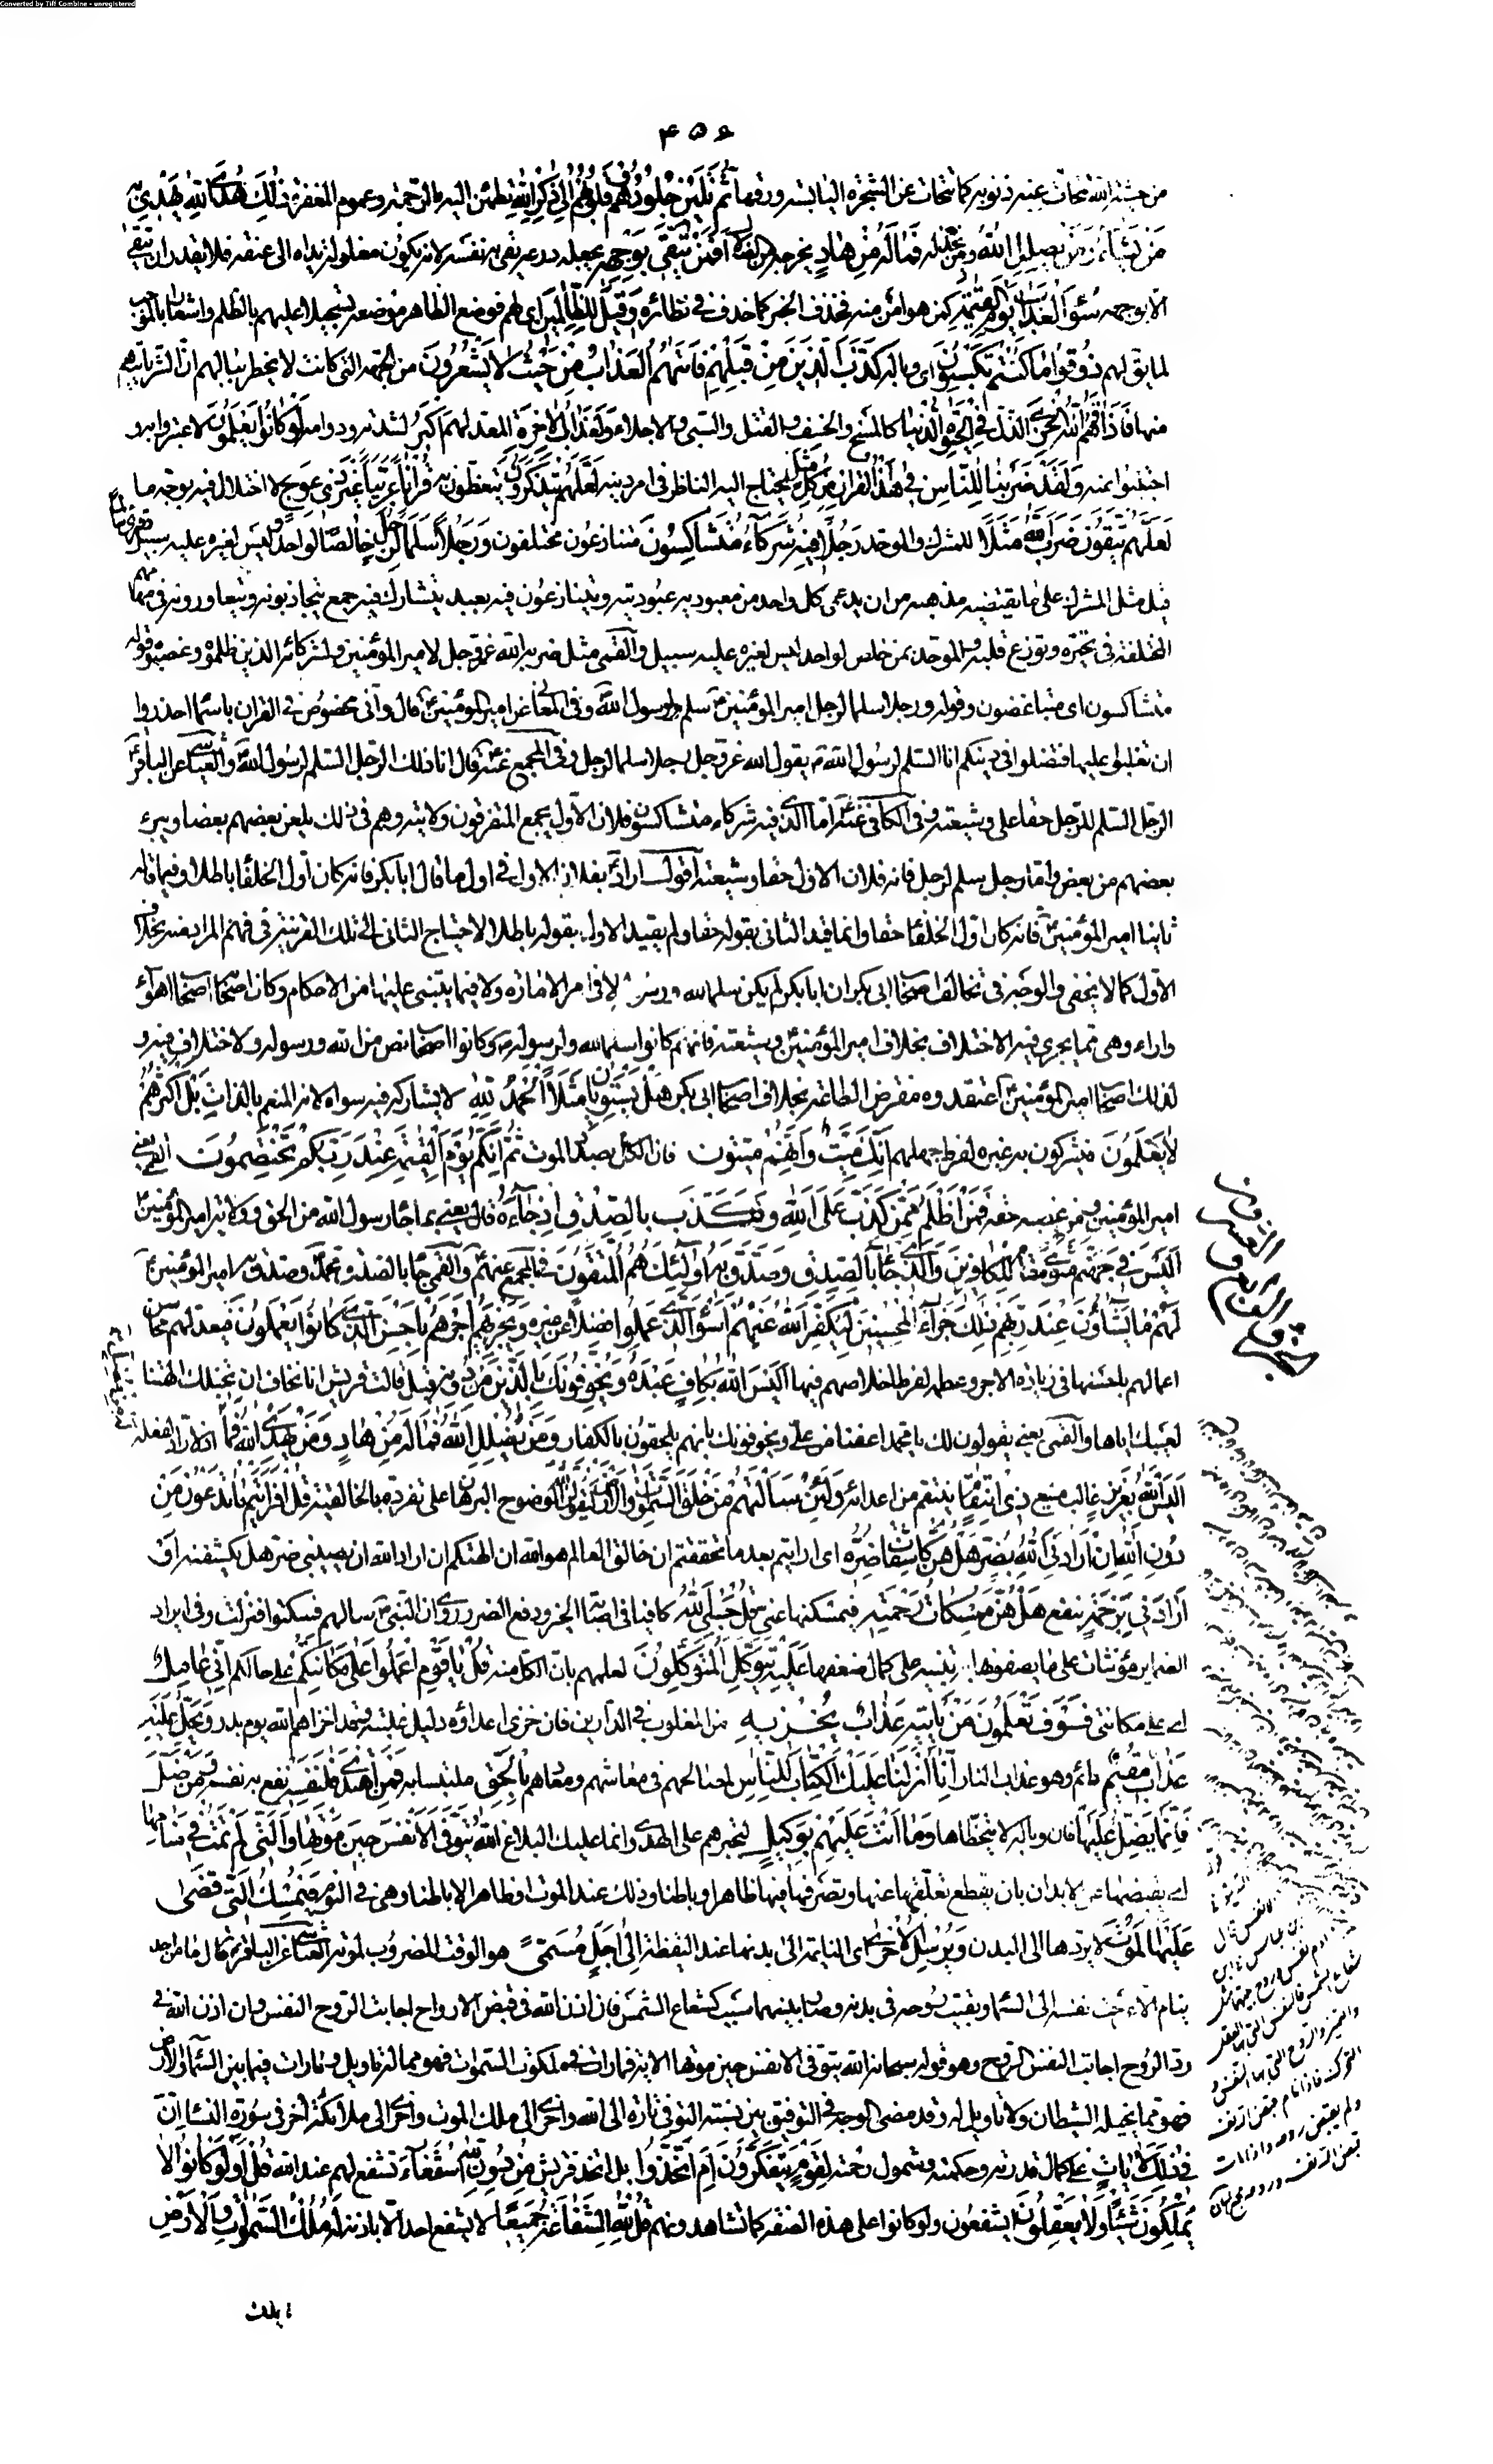 Converted by Tiff Combine - unregistered
۴۵۶
من خشية الله تتحات عنه ذنوبه كما تتحات عن الشجرة اليابسة ورقها ثُمَّ تَلِينُ جُلُودُهُمْ وَقُلُوبُهُمْ إِلَى ذِكْرِ اللَّهِ تطمئن اليه بالرحمة وعموم المغفرة ذَلِكَ هُدَى اللَّهِ يَهْدِي بِهِ
مَنْ يَشَاءُ وَمَنْ يُضْلِلِ اللَّهُ ومن يخذله فَمَا لَهُ مِنْ هَادٍ يخرجه من الضلالة أَفَمَنْ يَتَّقِي بِوَجْهِهِ يجعله درعه يقى به نفسه لانه يكون مغلولة يداه الى عنقه فلا يقدر ان يتقى
الا بوجهه سُوءَ الْعَذَابِ يَوْمَ الْقِيَامَةِ كمن هو امن منه فحذف الخبر كما حذف في نظائره وَقِيلَ لِلظَّالِمِينَ اى لهم فوضع الظاهر موضعه تسجيلا عليهم بالظلم واشعارا بالموجب
لما يقال لهم ذُوقُوا مَا كُنْتُمْ تَكْسِبُونَ اى وباله كَذَّبَ الَّذِينَ مِنْ قَبْلِهِمْ فَأَتَاهُمُ الْعَذَابُ مِنْ حَيْثُ لَا يَشْعُرُونَ من الجهة التى كانت لا يخطر ببالهم ان الشر ياتيهم
منها فَأَذَاقَهُمُ اللَّهُ الْخِزْيَ الذل فِي الْحَيَاةِ الدُّنْيَا كالمسخ والخسف والقتل والسبى والاجلاء وَلَعَذَابُ الْآخِرَةِ المعد لهم أَكْبَرُ لشدته ودوامه لَوْ كَانُوا يَعْلَمُونَ لاعتبروا به و
اجتنبوا عنه وَلَقَدْ ضَرَبْنَا لِلنَّاسِ فِي هَذَا الْقُرْآنِ مِنْ كُلِّ مَثَلٍ يحتاج اليه الناظر فى امر دينه لَعَلَّهُمْ يَتَذَكَّرُونَ يتعظون به قُرْآنًا عَرَبِيًّا غَيْرَ ذِي عِوَجٍ لا اختلال فيه بوجه ما
لَعَلَّهُمْ يَتَّقُونَ ضَرَبَ اللَّهُ مَثَلًا للمشرك والموحد رَجُلًا فِيهِ شُرَكَاءُ مُتَشَاكِسُونَ متنازعون مختلفون وَرَجُلًا سَلَمًا لِرَجُلٍ خالصا لواحد ليس لغيره عليه سبيل
قيل مثل المشرك على ما يقتضيه مذهبه من ان يدعى كل واحد من معبوديه عبوديته ويتنازعون فيه بعبد يتشارك فيه جمع يتجاذبونه ويتعاورونه فى مهامهم
المختلفة فى تحيره وتوزع قلبه والموحد بمن خلص لواحد ليس لغيره عليه سبيل والقمى مثل ضربه الله عز وجل لامير المؤمنين ولشركائه الذين ظلموه وغصبوه وقوله
متشاكسون اى متباغضون وقوله ورجلا سلما لرجل امير المؤمنين سلم لرسول الله وفى المعانى عن امير المؤمنين قال وانى مخصوص فى القران باسماء احذروا
ان تغلبوا عليها فتضلوا فى دينكم انا السلم لرسول الله يقول الله عز وجل ورجلا سلما لرجل وفى المجمع عنه قال انا ذلك الرجل السلم لرسول الله والعياشى عن الباقر
الرجل السلم للرجل حقا على وشيعته وفى الكافى عنه اما الذى فيه شركاء متشاكسون فلان الاول يجمع المتفرقون ولايته وهم فى ذلك يلعن بعضهم بعضا ويبرء
بعضهم من بعض واما رجل سلم لرجل فانه فلان الاول حقا وشيعته اقول اراد بفلان الاول فى اول ما قال ابا بكر فانه كان اول الخلفاء باطلا وفيما قاله
ثانيا امير المؤمنين فانه كان اول الخلفاء حقا وانما قيد الثانى بقوله حقا ولم يقيد الاول بقوله باطلا لاحتياج الثانى الى تلك القرينة فى فهم المراد منه بخلاف
الاول كما لا يخفى والوجه فى تخالف اصحاب ابى بكر ان ابا بكر لم يكن سلما لله ورسوله لا فى امر الامارة ولا فيما يبتنى عليها من الاحكام وكان اصحابه اصحاب اهواء
واراء وهى مما يجرى فيه الاختلاف بخلاف امير المؤمنين وشيعته فانهم كانوا سلما لله ولرسوله وكانوا اصحاب نص من الله ورسوله ولا اختلاف فيه و
لذلك اصحاب امير المؤمنين اعتقدوه مفترض الطاعة بخلاف اصحاب ابى بكر هَلْ يَسْتَوِيَانِ مَثَلًا الْحَمْدُ لِلَّهِ لا يشاركه فيه سواه لانه المنعم بالذات بَلْ أَكْثَرُهُمْ
لَا يَعْلَمُونَ فيشركون به غيره لفرط جهلهم إِنَّكَ مَيِّتٌ وَإِنَّهُمْ مَيِّتُونَ فان الكل بصدد الموت ثُمَّ إِنَّكُمْ يَوْمَ الْقِيَامَةِ عِنْدَ رَبِّكُمْ تَخْتَصِمُونَ القمى يعنى
امير المؤمنين ومن غصبه حقه فَمَنْ أَظْلَمُ مِمَّنْ كَذَبَ عَلَى اللَّهِ وَكَذَّبَ بِالصِّدْقِ إِذْ جَاءَهُ قال يعنى بما جاء به رسول الله من الحق وولاية امير المؤمنين
أَلَيْسَ فِي جَهَنَّمَ مَثْوًى مقام لِلْكَافِرِينَ وَالَّذِي جَاءَ بِالصِّدْقِ وَصَدَّقَ بِهِ أُولَئِكَ هُمُ الْمُتَّقُونَ فى المجمع عنهم والقمى جاء بالصدق محمد وصدق به امير المؤمنين
لَهُمْ مَا يَشَاءُونَ عِنْدَ رَبِّهِمْ ذَلِكَ جَزَاءُ الْمُحْسِنِينَ لِيُكَفِّرَ اللَّهُ عَنْهُمْ أَسْوَأَ الَّذِي عَمِلُوا فضلا عن غيره وَيَجْزِيَهُمْ أَجْرَهُمْ بِأَحْسَنِ الَّذِي كَانُوا يَعْمَلُونَ فيعد لهم محاسن
اعمالهم باحسنها فى زيادة الاجر وعظمه لفرط اخلاصهم فيها أَلَيْسَ اللَّهُ بِكَافٍ عَبْدَهُ وَيُخَوِّفُونَكَ بِالَّذِينَ مِنْ دُونِهِ قيل قالت قريش انا نخاف ان تخبلك الهتنا
لعيبك اياها والقمى يعنى يقولون لك يا محمد اعفنا من على ويخوفونك بانهم يلحقون بالكفار وَمَنْ يُضْلِلِ اللَّهُ فَمَا لَهُ مِنْ هَادٍ وَمَنْ يَهْدِ اللَّهُ فَمَا اذ لا راد لفعله
أَلَيْسَ اللَّهُ بِعَزِيزٍ غالب منيع ذِي انْتِقَامٍ ينتقم من اعدائه وَلَئِنْ سَأَلْتَهُمْ مَنْ خَلَقَ السَّمَاوَاتِ وَالْأَرْضَ لَيَقُولُنَّ اللَّهُ لوضوح البرهان على تفرده بالخالقية قُلْ أَفَرَأَيْتُمْ مَا تَدْعُونَ مِنْ
دُونِ اللَّهِ إِنْ أَرَادَنِيَ اللَّهُ بِضُرٍّ هَلْ هُنَّ كَاشِفَاتُ ضُرِّهِ اى ارايتم بعد ما تحققتم ان خالق العالم هو الله ان الهتكم ان اراد الله ان يصيبنى ضر هل يكشفنه أَوْ
أَرَادَنِي بِرَحْمَةٍ بنفع هَلْ هُنَّ مُمْسِكَاتُ رَحْمَتِهِ فيمسكنها عنى قُلْ حَسْبِيَ اللَّهُ كافيا فى اصابة الخير ودفع الضر وروى ان النبى سالهم فسكتوا فنزلت وفى ايراد
الضماير مؤنثات على ما يصفونها به تنبيه على كمال ضعفها عَلَيْهِ يَتَوَكَّلُ الْمُتَوَكِّلُونَ لعلمهم بان الكل منه قُلْ يَا قَوْمِ اعْمَلُوا عَلَى مَكَانَتِكُمْ على حالكم إِنِّي عَامِلٌ
اى على مكانتى فَسَوْفَ تَعْلَمُونَ مَنْ يَأْتِيهِ عَذَابٌ يُخْزِيهِ من المغلوب فى الدارين فان خزى اعدائه دليل غلبته وقد اخزاهم الله يوم بدر وَيَحِلُّ عَلَيْهِ
عَذَابٌ مُقِيمٌ دائم وهو عذاب النار إِنَّا أَنْزَلْنَا عَلَيْكَ الْكِتَابَ لِلنَّاسِ لمصالحهم فى معاشهم ومعادهم بِالْحَقِّ متلبسا به فَمَنِ اهْتَدَى فَلِنَفْسِهِ نفع به نفسه وَمَنْ ضَلَّ
فَإِنَّمَا يَضِلُّ عَلَيْهَا فان وباله لا يتخطاها وَمَا أَنْتَ عَلَيْهِمْ بِوَكِيلٍ لتجبرهم على الهدى وانما عليك البلاغ اللَّهُ يَتَوَفَّى الْأَنْفُسَ حِينَ مَوْتِهَا وَالَّتِي لَمْ تَمُتْ فِي مَنَامِهَا
اى يقبضها عن الابدان بان يقطع تعلقها عنها وتصرفها فيها ظاهرا وباطنا وذلك عند الموت او ظاهرا لا باطنا وهى فى النوم فَيُمْسِكُ الَّتِي قَضَى
عَلَيْهَا الْمَوْتَ لا يردها الى البدن وَيُرْسِلُ الْأُخْرَى اى النايمة الى بدنها عند اليقظة إِلَى أَجَلٍ مُسَمًّى هو الوقت المضروب لموته العياشى عن الباقر قال ما من احد
ينام الا عرجت نفسه الى السماء وبقيت روحه فى بدنه وصار بينهما سبب كشعاع الشمس فان اذن الله فى قبض الارواح اجابت الروح النفس وان اذن الله فى
رد الروح اجابت النفس الروح وهو قوله سبحانه الله يتوفى الانفس حين موتها الاية فما رات فى ملكوت السموات فهو مما له تاويل وما رات فيما بين السماء والارض
فهو مما يخيله الشيطان ولا تاويل له وقد مضى الوجه فى التوفيق بين نسبة التوفى تارة الى الله واخرى الى ملك الموت واخرى الى ملائكة اخر فى سورة النساء إِنَّ
فِي ذَلِكَ لَآيَاتٍ على كمال قدرته وحكمته وشمول رحمته لِقَوْمٍ يَتَفَكَّرُونَ أَمِ اتَّخَذُوا بل اتخذ قريش مِنْ دُونِ اللَّهِ شُفَعَاءَ تشفع لهم عند الله قُلْ أَوَلَوْ كَانُوا لَا
يَمْلِكُونَ شَيْئًا وَلَا يَعْقِلُونَ ايشفعون ولو كانوا على هذه الصفة كما تشاهدونهم قُلْ لِلَّهِ الشَّفَاعَةُ جَمِيعًا لا يشفع احد الا باذنه لَهُ مُلْكُ السَّمَاوَاتِ وَالْأَرْضِ